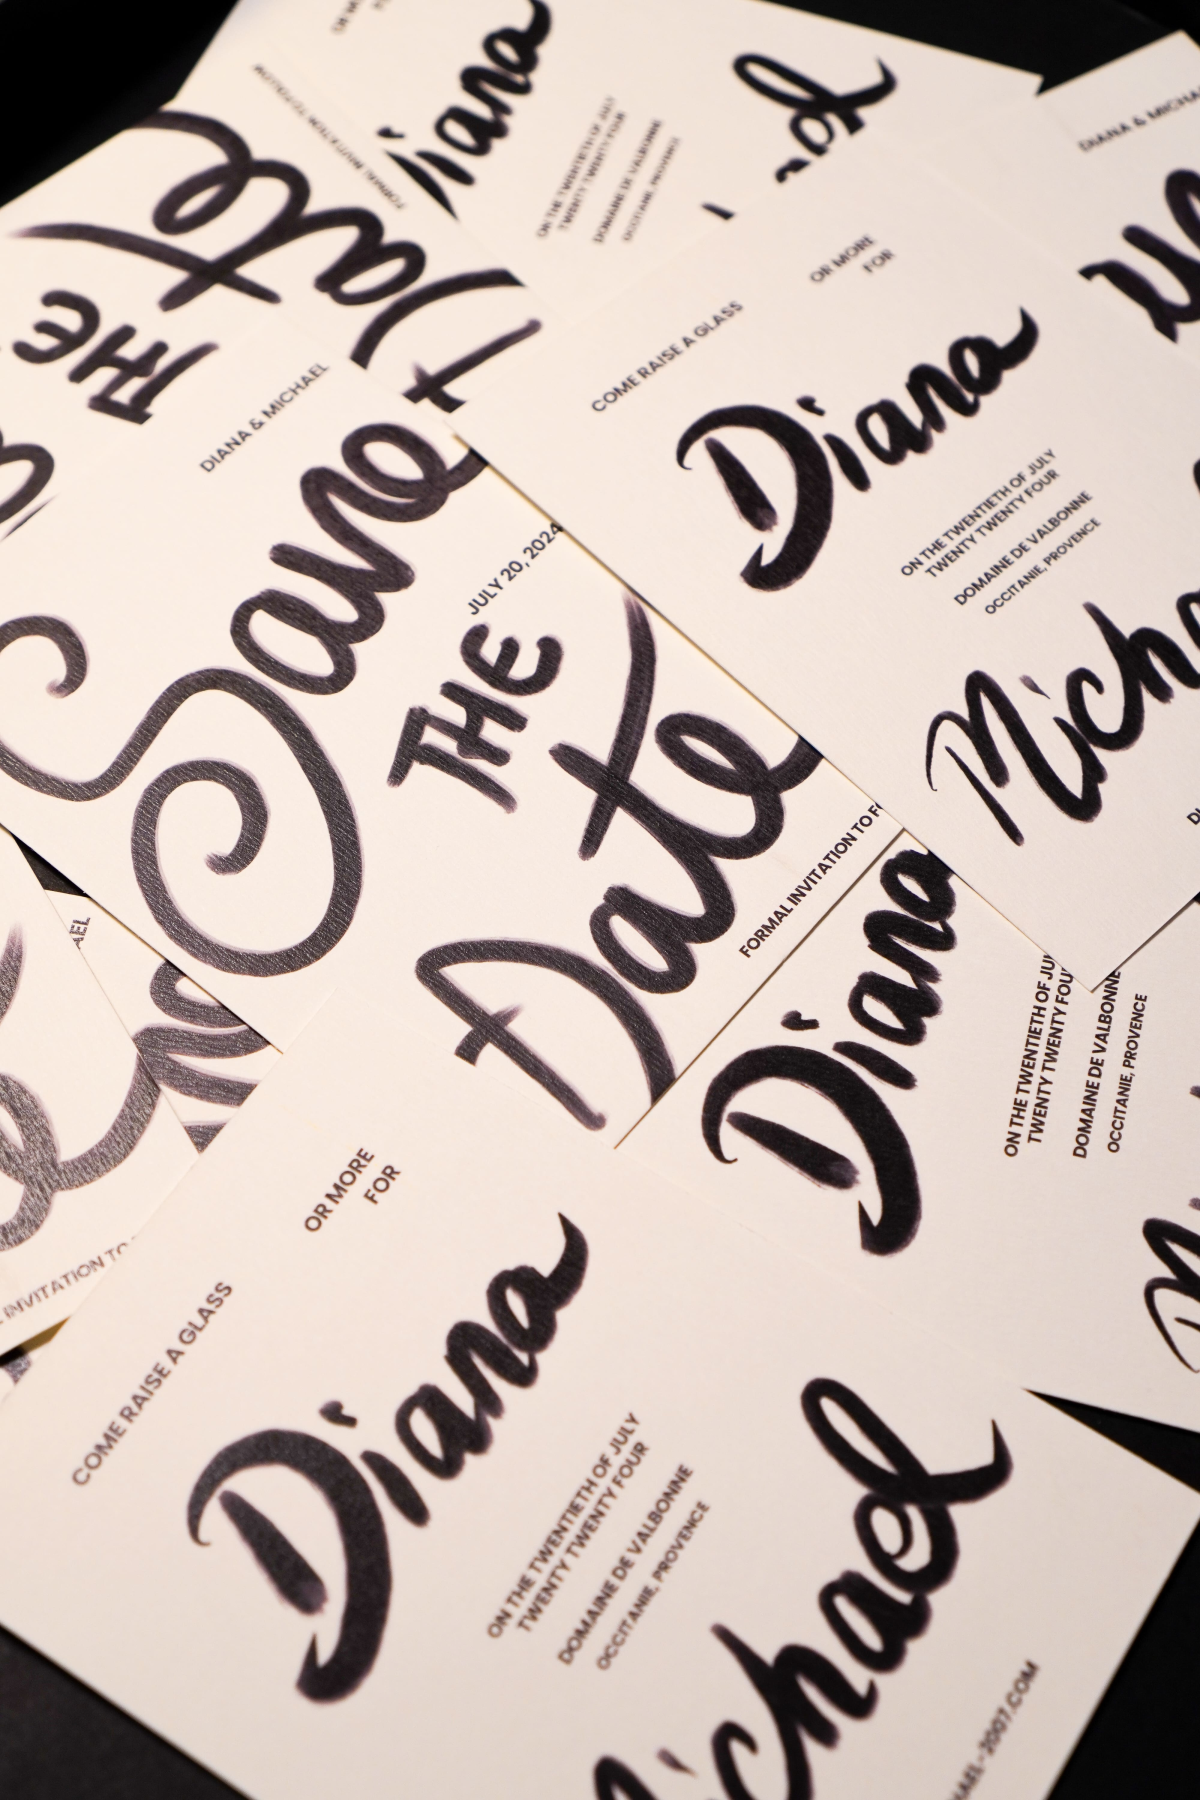 Diana
ON THE TWENTIETH OF JULY
TWENTY TWENTY FOUR
DOMAINE DE VALBONNE
OCCITANIE, PROVENCE
FORMAL INVITATION TO FOLLOW
Date
THE
DIANA & MICHAEL
Save
JULY 20, 2024
THE
Date
FORMAL INVITATION TO
OR MORE
FOR
COME RAISE A GLASS
Diana
ON THE TWENTIETH OF JULY
TWENTY TWENTY FOUR
DOMAINE DE VALBONNE
OCCITANIE, PROVENCE
DIANA &
Diana
ON THE TWENTIETH OF
TWENTY TWENTY
DOMAINE DE VALBONNE
OCCITANIE, PROVENCE
INVITATION TO
OR MORE
FOR
COME RAISE A GLASS
Diana
ON THE TWENTIETH OF JULY
TWENTY TWENTY FOUR
DOMAINE DE VALBONNE
OCCITANIE, PROVENCE
ichael
HAEL-2007.COM